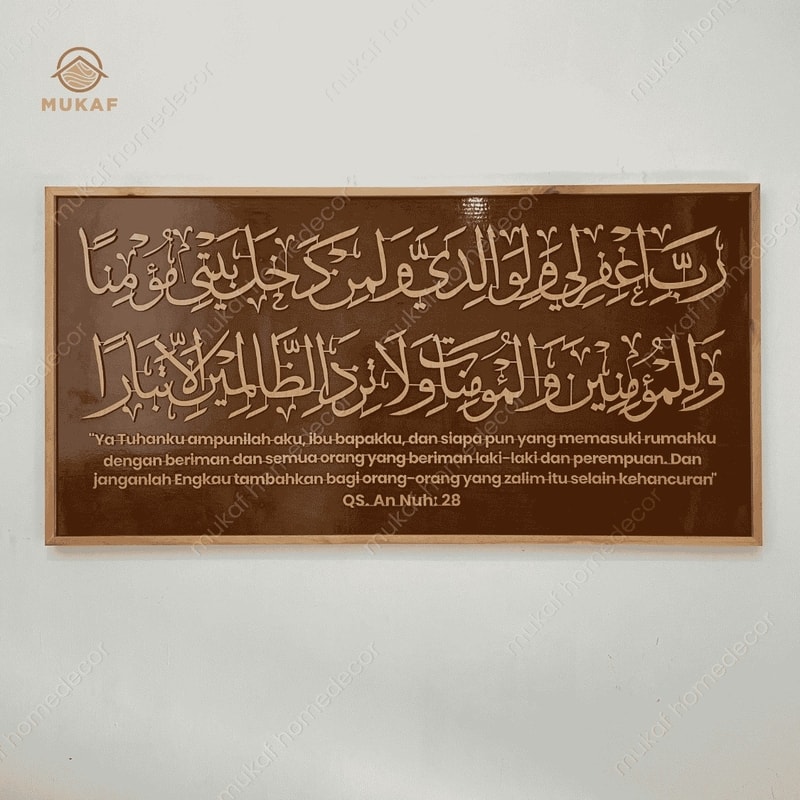 MUKAF
رَبِّ اغْفِرْ لِي وَلِوَالِدَيَّ وَلِمَنْ دَخَلَ بَيْتِيَ مُؤْمِنًا
وَلِلْمُؤْمِنِينَ وَالْمُؤْمِنَاتِ وَلَا تَزِدِ الظَّالِمِينَ إِلَّا تَبَارًا
"Ya Tuhanku ampunilah aku, ibu bapakku, dan siapa pun yang memasuki rumahku
dengan beriman dan semua orang yang beriman laki-laki dan perempuan. Dan
janganlah Engkau tambahkan bagi orang-orang yang zalim itu selain kehancuran"
QS. An Nuh: 28
mukaf homedecor